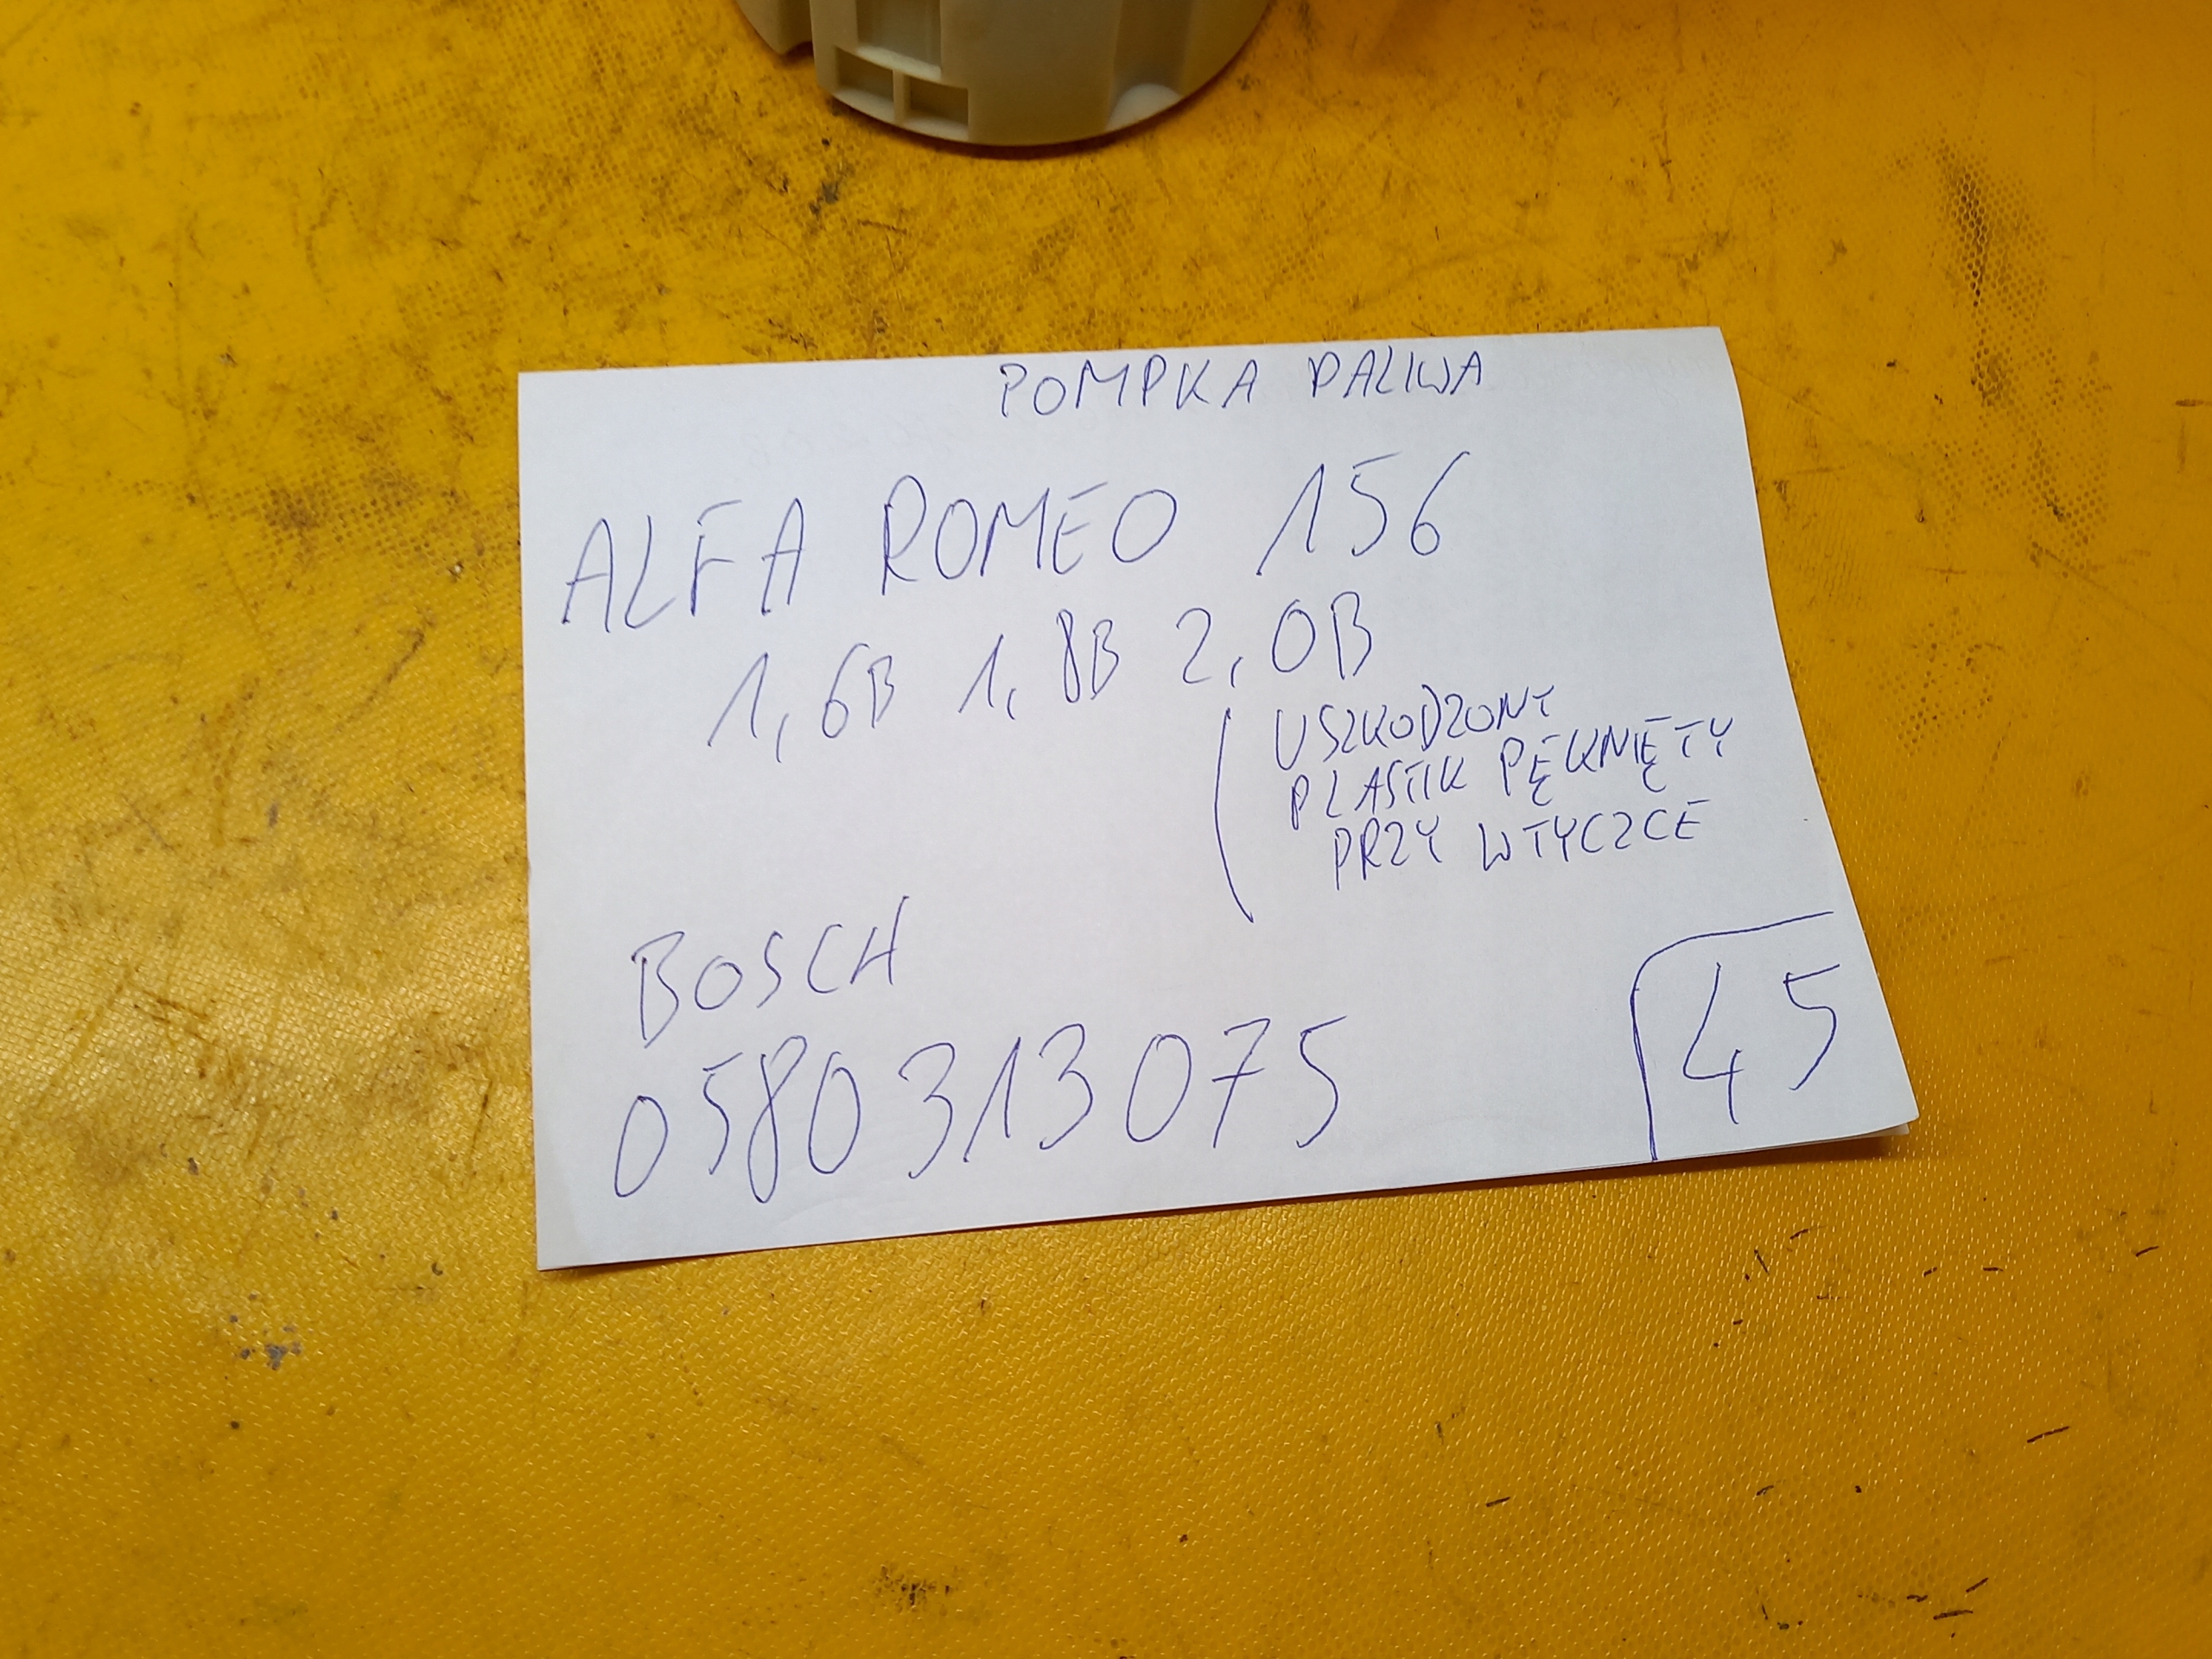 POMPKA PALIWA
ALFA ROMEO 156
1,6B 1,8B 2,0B
USZKODZONY
PLASTIK PĘKNIĘTY
PRZY WTYCZCE
BOSCH
0580313075
45